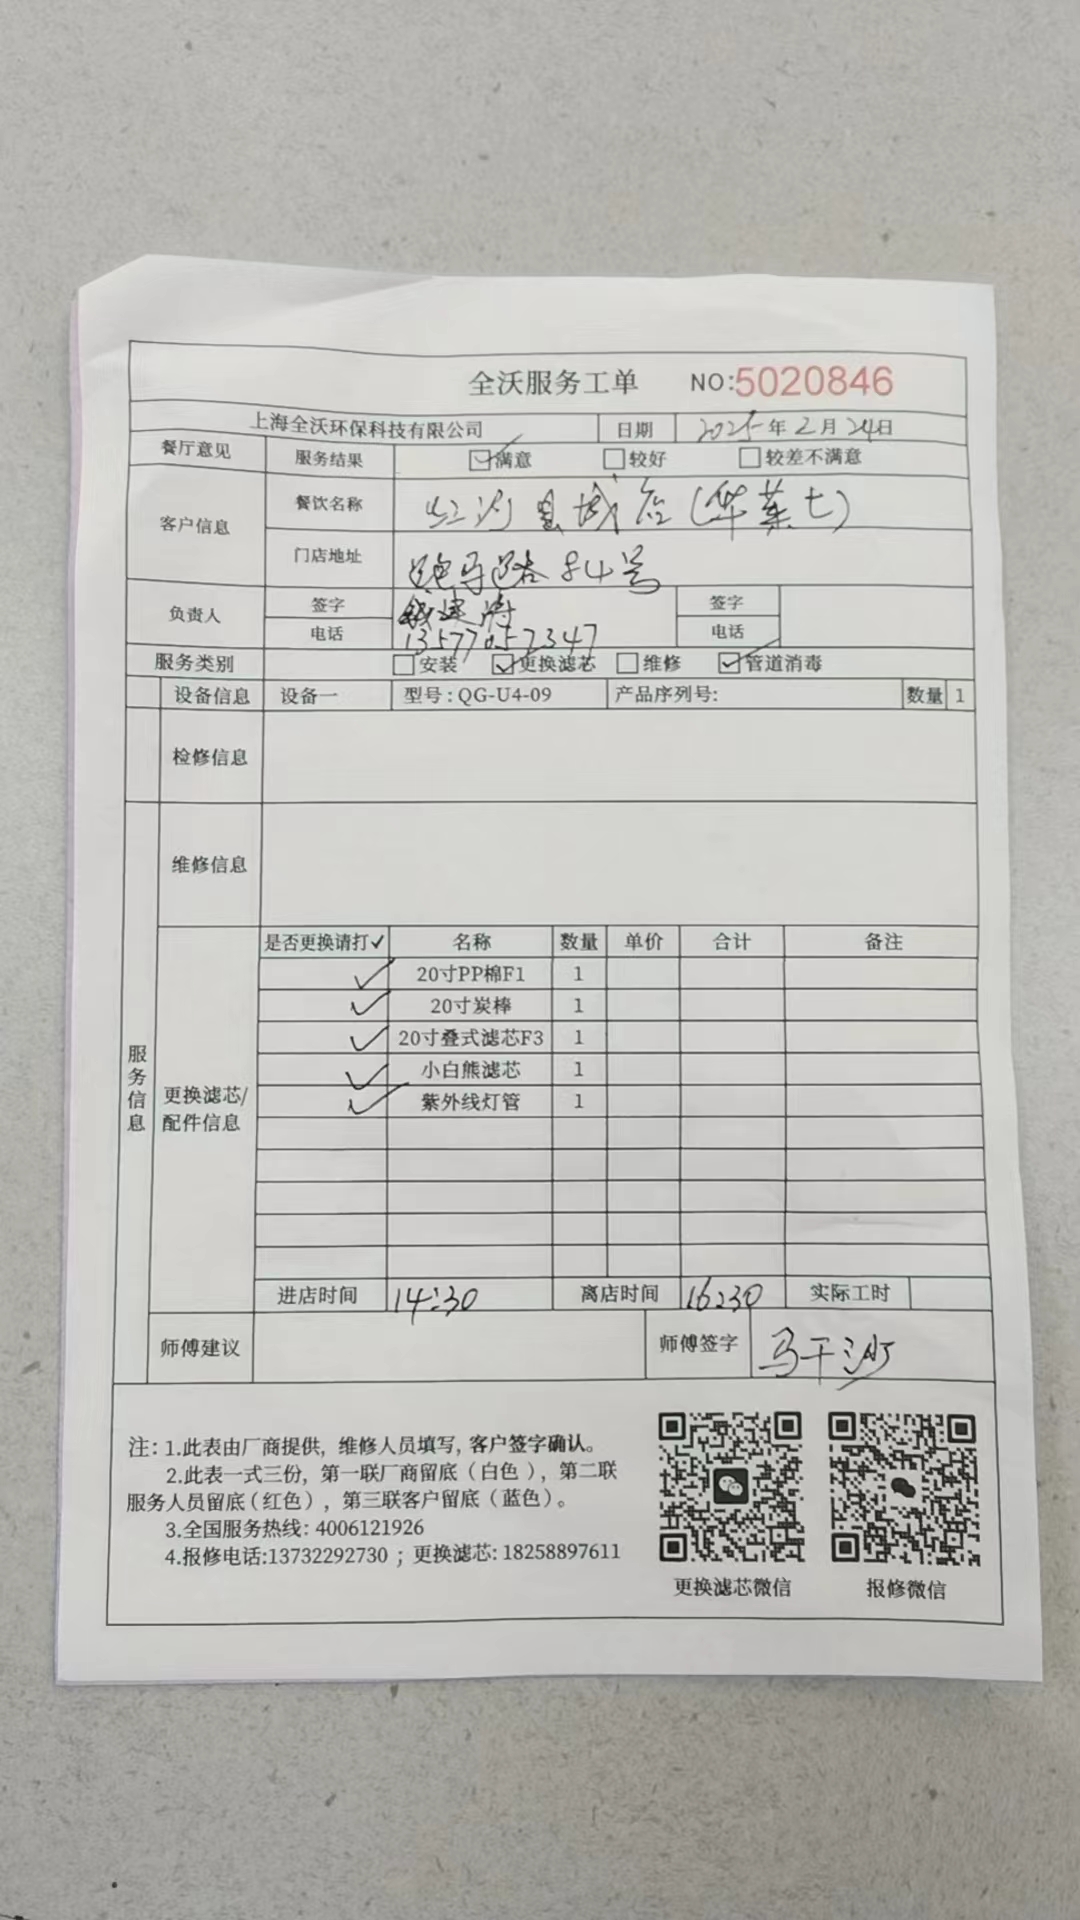 全沃服务工单 NO:5020846
上海全沃环保科技有限公司 日期 2025年2月24日
餐厅意见 服务结果 ☑满意 □较好 □较差不满意
客户信息 餐饮名称 红河县城店(华莱士)
门店地址 跑马路84号
负责人 签字 签字
电话 13577057347 电话
服务类别 □安装 ☑更换滤芯 □维修 ☑管道消毒
设备信息 设备一 型号:QG-U4-09 产品序列号: 数量 1
检修信息
维修信息
服务信息
更换滤芯/配件信息
是否更换请打✓ 名称 数量 单价 合计 备注
✓ 20寸PP棉F1 1
✓ 20寸炭棒 1
✓ 20寸叠式滤芯F3 1
✓ 小白熊滤芯 1
✓ 紫外线灯管 1
进店时间 14:30 离店时间 16:30 实际工时
师傅建议 师傅签字 马干沙
注: 1.此表由厂商提供, 维修人员填写, 客户签字确认。
2.此表一式三份, 第一联厂商留底(白色), 第二联
服务人员留底(红色), 第三联客户留底(蓝色)。
3.全国服务热线: 4006121926
4.报修电话:13732292730 ; 更换滤芯: 18258897611
更换滤芯微信 报修微信